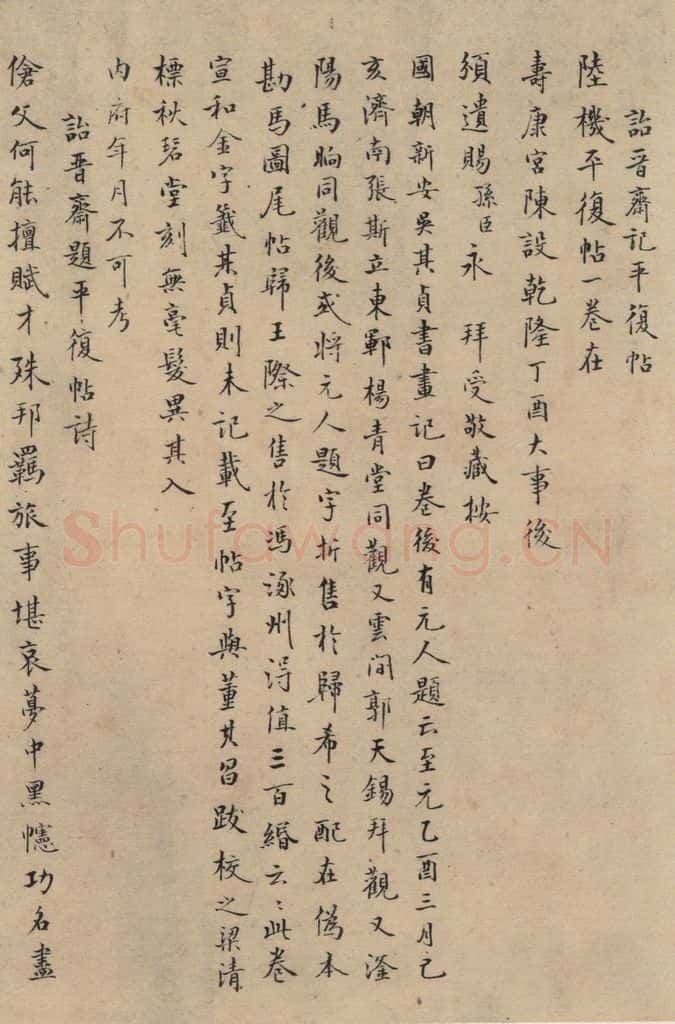 詒晉齋記平復帖
陸機平復帖一卷在
壽康宮陳設乾隆丁酉大事後
頒遺賜孫臣永 拜受敬藏按
國朝新安吳其貞書畫記曰卷後有元人題云至元乙酉三月己
亥濟南張斯立東鄆楊青堂同觀又雲間郭天錫拜觀又滏
陽馬晌同觀後或將元人題字折售於歸希之配在偽本
勘馬圖尾帖歸王際之售於馮涿州得值三百緡云〻此卷
宣和金字籤其貞則未記載至帖字與董其昌跋校之梁清
標秋碧堂刻無毫髮異其入
內府年月不可考
詒晉齋題平復帖詩
傖父何能擅賦才殊邦羈旅事堪哀夢中黑幰功名盡
Shufawang.CN